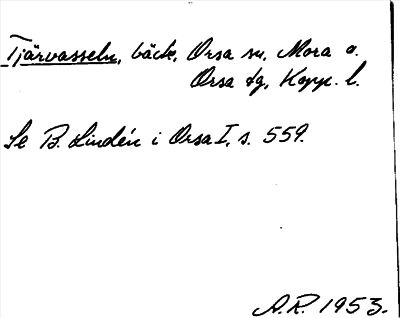 Tjärvasseln, bäck, Orsa sn, Mora o.
Orsa tg, Kopp. l.
Se B. Lindén i Orsa I, s. 559.
A.R. 1953.